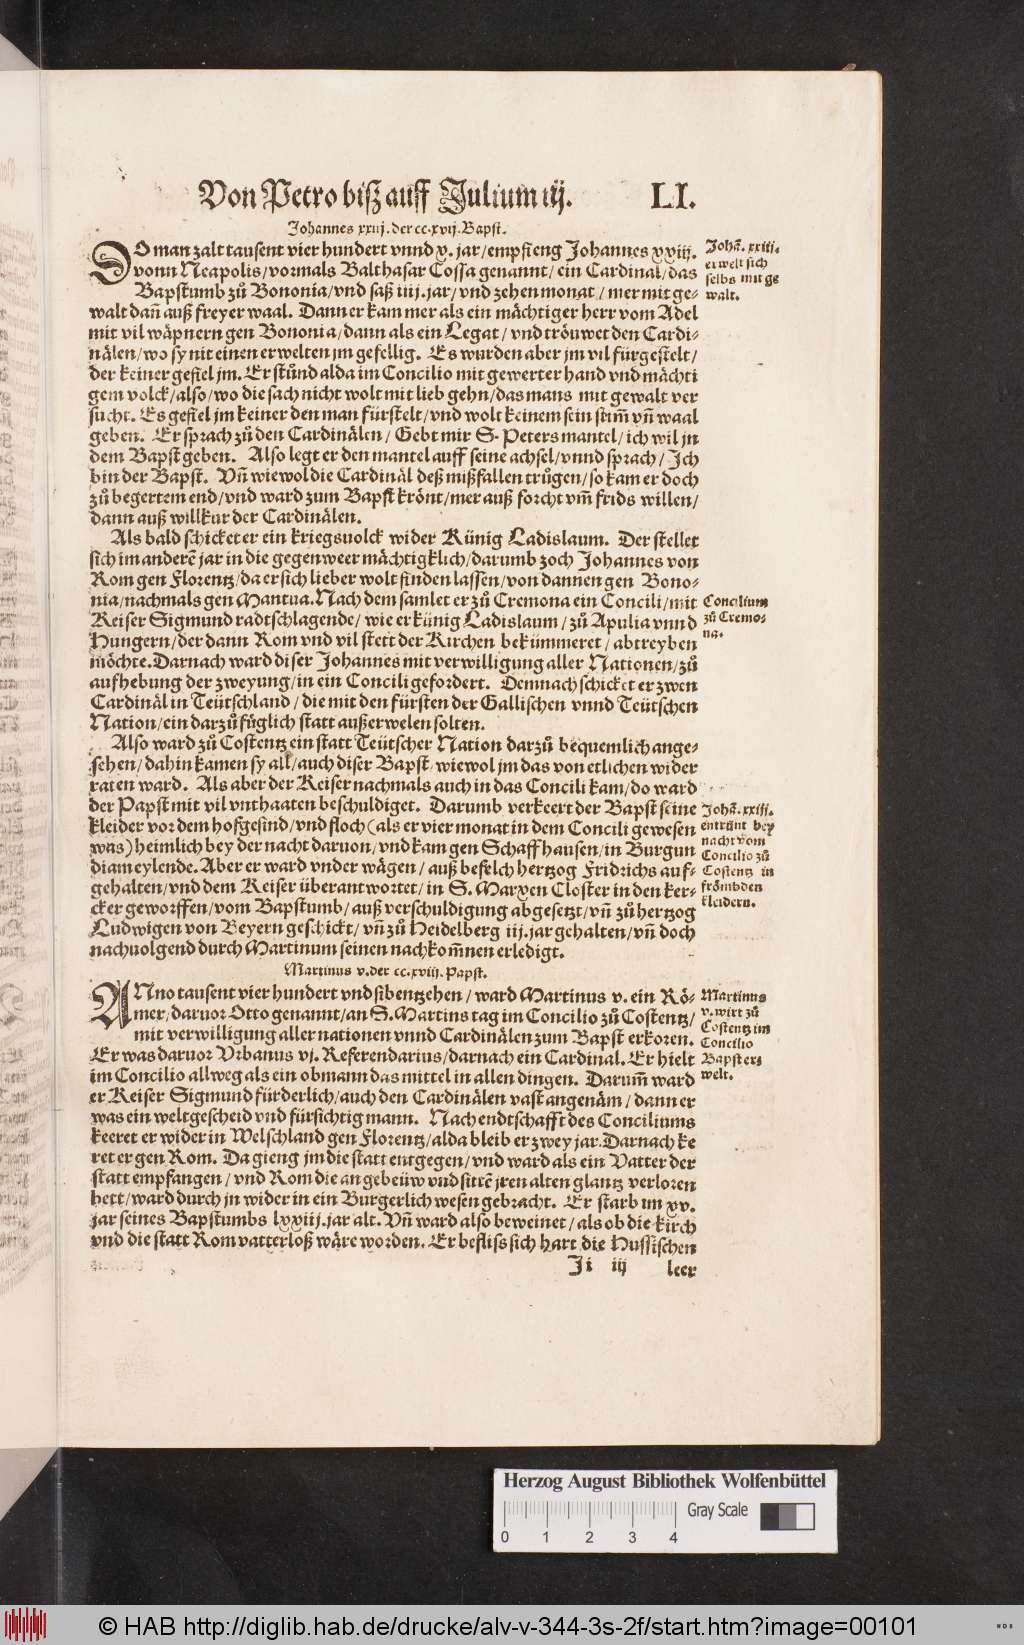 Von Petro biß auff Julium iij. LI.
Johannes xxiij. der cc.xvij. Bapst.
DO man zalt tausent vier hundert vnnd x. jar/empfieng Johannes xxiij.
vonn Neapolis/vormals Balthasar Cossa genannt/ein Cardinal/das
Bapstumb zů Bononia/vnd saß iiij.jar/vnd zehen monat/mer mit ge-
walt dañ auß freyer waal. Dann er kam mer als ein mächtiger herr vom Adel
mit vil wäpnern gen Bononia/dann als ein Legat/vnd tröuwet den Cardi-
nälen/wo sy nit einen erwelten jm gefellig. Es wurden aber jm vil fürgestelt/
der keiner gefiel jm. Er stůnd alda im Concilio mit gewerter hand vnd mächti
gem volck/also/wo die sach nicht wolt mit lieb gehn/das mans mit gewalt ver
sucht. Es gefiel jm keiner den man fürstelt/vnd wolt keinem sein stim̃ vñ waal
geben. Er sprach zů den Cardinälen/Gebt mir S. Peters mantel/ich wil jn
dem Bapst geben. Also legt er den mantel auff seine achsel/vnnd sprach/Ich
bin der Bapst. Vñ wiewol die Cardinäl deß mißfallen trůgen/so kam er doch
zů begertem end/vnd ward zum Bapst krönt/mer auß forcht vm̃ frids willen/
dann auß willkur der Cardinälen.
Als bald schicket er ein kriegsvolck wider Künig Ladislaum. Der stellet
sich im anderẽ jar in die gegenweer mächtigklich/darumb zoch Johannes von
Rom gen Florentz/da er sich lieber wolt finden lassen/von dannen gen Bono-
nia/nachmals gen Mantua. Nach dem samlet er zů Cremona ein Concili/mit
Keiser Sigmund radtschlagende/wie er künig Ladislaum/zů Apulia vnnd
Hungern/der dann Rom vnd vil stett der Kirchen bekümmeret/abtreyben
möchte. Darnach ward diser Johannes mit verwilligung aller Nationen/zů
aufhebung der zweyung/in ein Concili gefordert. Demnach schicket er zwen
Cardinäl in Teütschland/die mit den fürsten der Gallischen vnnd Teütschen
Nation/ein darzů füglich statt außerwelen solten.
Also ward zů Costentz ein statt Teütscher Nation darzů bequemlich ange-
sehen/dahin kamen sy all/auch diser Bapst/wiewol jm das von etlichen wider
raten ward. Als aber der Keiser nachmals auch in das Concili kam/do ward
der Papst mit vil vnthaaten beschuldiget. Darumb verkeert der Bapst seine
kleider vor dem hofgesind/vnd floch (als er vier monat in dem Concili gewesen
was) heimlich bey der nacht daruon/vnd kam gen Schaffhausen/in Burgun
diam eylende. Aber er ward vnder wägen/auß befelch hertzog Fridrichs auf-
gehalten/vnd dem Keiser überantwortet/in S. Marxen Closter in den ker-
cker geworffen/vom Bapstumb/auß verschuldigung abgesetzt/vñ zů hertzog
Ludwigen von Beyern geschickt/vñ zů Heidelberg iij.jar gehalten/vñ doch
nachuolgend durch Martinum seinen nachkom̃nen erledigt.
Martinus v. der cc.xviij. Papst.
ANno tausent vier hundert vnd sibentzehen/ward Martinus v. ein Rö-
mer/daruor Otto genannt/an S. Martins tag im Concilio zů Costentz/
mit verwilligung aller nationen vnnd Cardinälen zum Bapst erkoren.
Er was daruor Vrbanus vj. Referendarius/darnach ein Cardinal. Er hielt
im Concilio allweg als ein obmann das mittel in allen dingen. Darum̃ ward
er Keiser Sigmund fürderlich/auch den Cardinälen vast angenäm/dann er
was ein weltgescheid vnd fürsichtig mann. Nach endtschafft des Conciliums
keeret er wider in Welschland gen Florentz/alda bleib er zwey jar. Darnach ke
ret er gen Rom. Da gieng jm die statt entgegen/vnd ward als ein Vatter der
statt empfangen/vnd Rom die an gebeüw vnd sittẽ jren alten glantz verloren
hett/ward durch jn wider in ein Burgerlich wesen gebracht. Er starb im xv.
jar seines Bapstumbs lxxiij.jar alt. Vñ ward also beweinet/als ob die kirch
vnd die statt Rom vatterloß wäre worden. Er befliss sich hart die Hussischen
Ji iij leer
Johã. xxiii.
erwelt sich
selbs mit ge
walt.
Concilium
zů Cremo-
na.
Johã. xxiii.
entrünt bey
nacht vom
Concilio zů
Costentz in
frömbden
kleidern.
Martinus
v. wirt zů
Costentz im
Concilio
Bapst er-
welt.
Herzog August Bibliothek Wolfenbüttel
Gray Scale
0 1 2 3 4
© HAB http://diglib.hab.de/drucke/alv-v-344-3s-2f/start.htm?image=00101